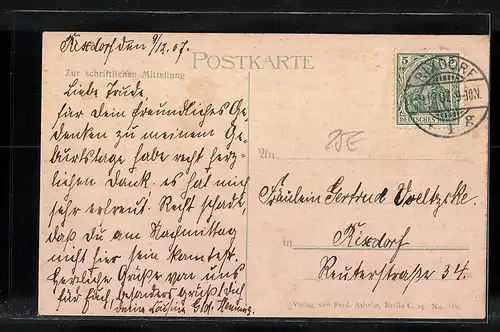 Rixdorf den 9/12.07.
POSTKARTE
Zur schriftlichen Mitteilung
Liebe Trude
für Dein freundliches Ge-
denken zu meinem Ge-
burtstage habe recht herz-
lichen Dank. es hat mich
sehr erfreut. Recht schade,
daß Du am Nachmittag
nicht hier sein kontest.
Herzliche Grüße von uns
für Euch, besonders grüßt Dich
Deine Cousine
5
DEUTSCHES
RIXDORF
An
Fräulein Gertrud Voeltzke.
in Rixdorf
Reuterstraße 34.
Verlag von Ferd. Ashelm, Berlin C. 19. No.